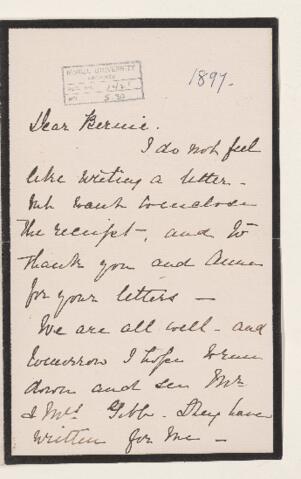 McGILL UNIVERSITY
ARCHIVES
ACC. NO.
REF.
1897.
Dear Bernie.
I do not feel
like writing a letter -
but want to enclose
the receipt -, and to
thank you and Anna
for your letters -
We are all well - and
tomorrow I hope to run
down and see Mr
& Mrs Gibb. They have
written for me -